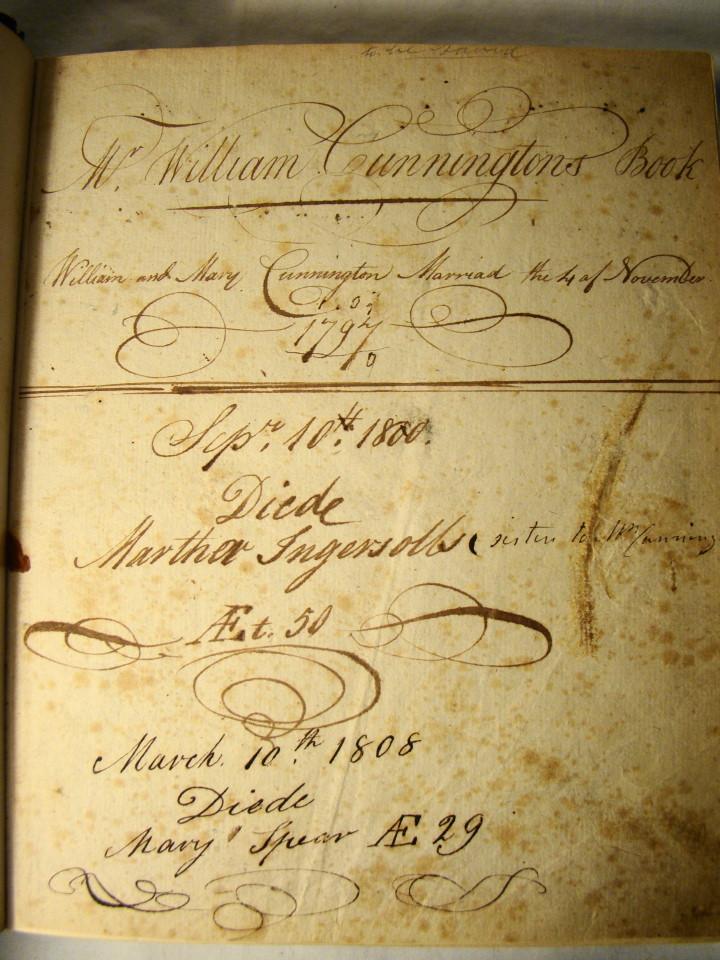 to be Saved
Mr. William Cunningtons Book
William and Mary Cunnington Marriad the 4 of November
1797
Sepr. 10th. 1800.
Diede
Marther Ingersolls (sister to Mr Cunning
Æt. 50
March. 10th. 1808
Diede
Mary Spear Æ 29